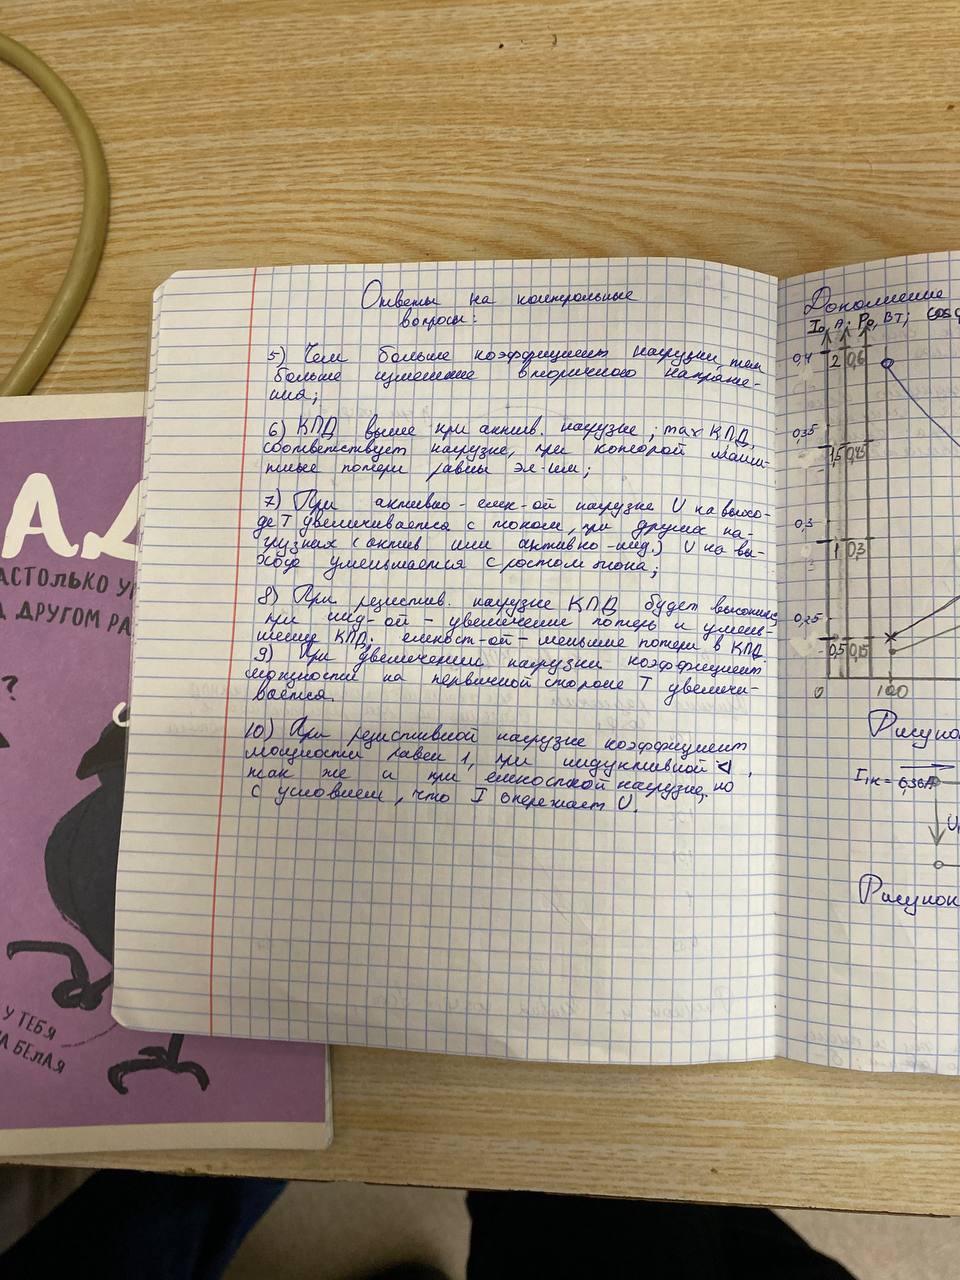 Ответы на контрольные
вопросы:
5) Чем больше коэффициент нагрузки, тем
больше изменение вторичного напряже-
ния;
6) КПД выше при актив. нагрузке; max КПД
соответствует нагрузке, при которой магни-
тные потери равны эл-им;
7) При активно-емк-ой нагрузке U на выхо-
де T увеличивается с током, при других на-
грузках (актив или активно-инд.) U на вы-
ходе уменьшается с ростом тока;
8) При резистив. нагрузке КПД будет высоким,
при инд-ой - увеличение потерь и умень-
шение КПД; емкост-ой - меньшие потери в КПД
9) При увеличении нагрузки коэффициент
мощности на первичной стороне T увеличи-
вается.
10) При резистивной нагрузке коэффициент
мощности равен 1, при индуктивной <1,
так же и при емкостной нагрузке, но
с условием, что I опережает U.
Дополнение
I₀, A; P₀, Вт; cos φ
0,4 2 0,6
0,35
1,5 0,45
0,3
1 0,3
0,25
0,5 0,15
0 100
Рисуно
I₁к = 6,36А
U₁
Рисунок
А
АСТОЛЬКО У
ДРУГОМ РА
?
У ТЕБЯ
А БЕЛАЯ